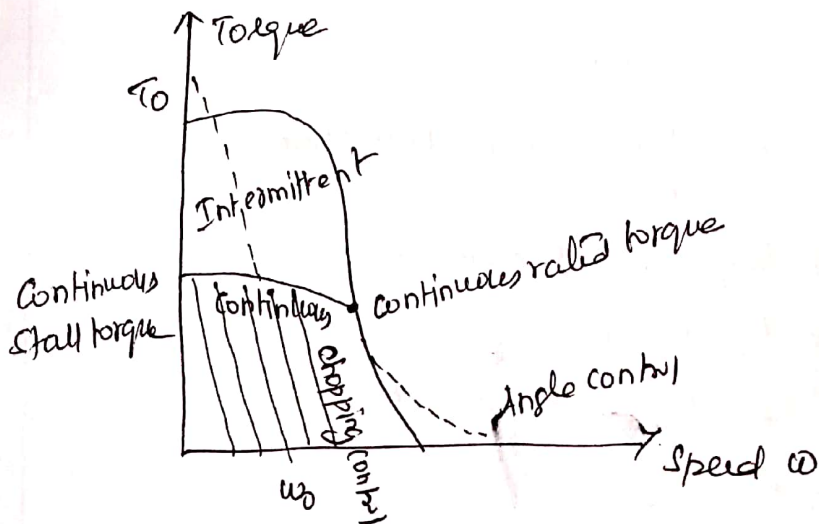 Torque
To
Intermittent
Continuous
Stall torque
continuous
continuous rated torque
chopping control
Angle control
Speed ω
ω0